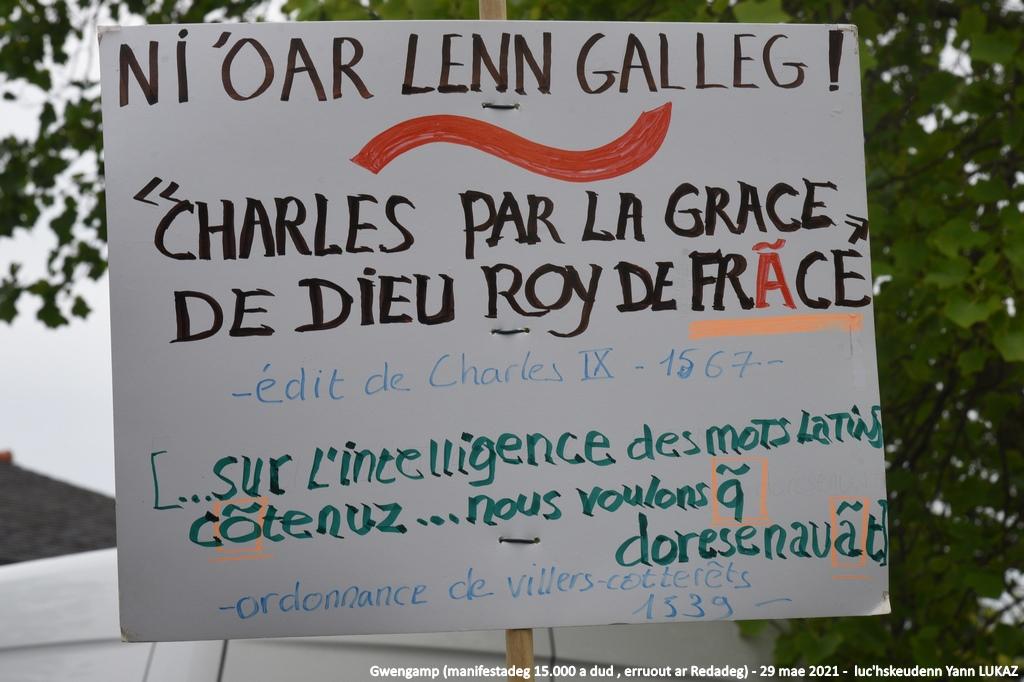 NI 'OAR LENN GALLEG !
« CHARLES PAR LA GRACE
DE DIEU ROY DE FRÃCE »
- édit de Charles IX - 1567 -
[... sur l'intelligence des mots latins
cõtenuz ... nous voulons q̃
doresenavãt]
- ordonnance de villers-cotterêts
1539 -
Gwengamp (manifestadeg 15.000 a dud , erruout ar Redadeg) - 29 mae 2021 - luc'hskeudenn Yann LUKAZ